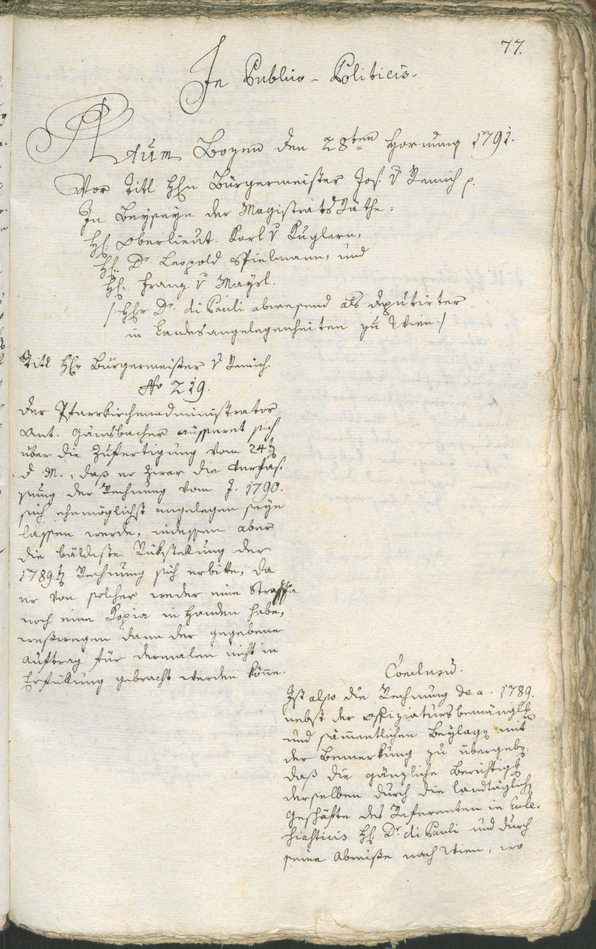 77.
In Publico-Politicis.
Actum Bozen den 28ten Hornung 1791.
Vor Titl Hhn Bürgermeister Jos. v Remich p.
In Beyseyn der Magistrats Räthe:
Hh. Oberlieut. Karl v Kuglern,
Hh. Dr. Leopold Spielmann, und
Hh. Franz v Mayrl.
/: Hhr Dr. di Pauli abwesend als deputirter
in Landesangelegenheiten zu Wien :/
Titl Hhr Bürgermeister v Remich.
No 219.
Der Pfarrkirchenadministrator
Ant. Gänsbacher äusseret sich
über die Zufertigung vom 24t
d. M., daß er zwar die Verfas-
sung der Rechnung vom J. 1790.
sich ehemöglichst angelegen seyn
lassen werde, indessen aber
die bäldeste Rückstellung der
1789t Rechnung sich erbitte, da
er von solcher weder eine
noch eine Copia in Handen habe,
weßwegen dann der gegebene
Auftrag für dermalen nicht in
Erfüllung gebracht werden könne.
Conclusum.
Ist also die Rechnung de a. 1789.
nebst der Offiziatursbemänglg
und sämmentlichen Beylagen mit
der Bemerkung zu übergeben,
daß die gänzliche Berichtigg
derselben durch die landtäglichen
Geschäfte des Referenten in Eccle-
siasticis Hh Dr. di Pauli und durch
seine Abreise nach Wien, wo